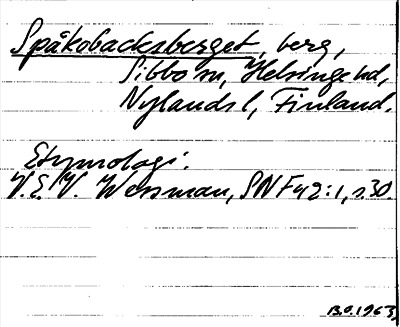 Spåkobacksberget, berg,
Sibbo sn, Helsinge hd,
Nylands l, Finland.
Etymologi.
V.E.V. Wessman, SNF 42:1, s.30.
B.O.1963.